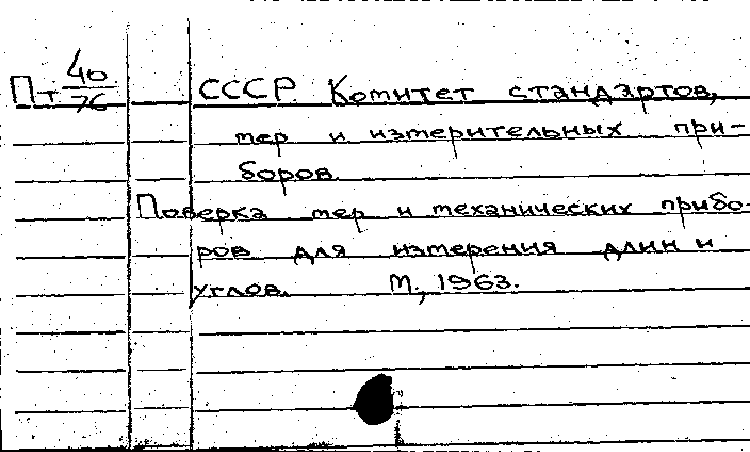 Пт 40/76 СССР Комитет стандартов,
мер и измерительных при-
боров
Поверка мер и механических прибо-
ров для измерения длин и
углов. М., 1963.